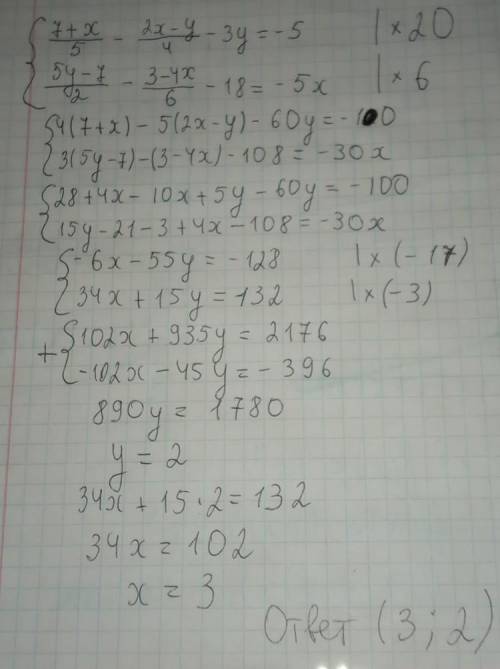 { (7+x)/5 - (2x-y)/4 - 3y = -5 | × 20
(5y-7)/2 - (3-4x)/6 - 18 = -5x | × 6
{ 4(7+x) - 5(2x-y) - 60y = -100
3(5y-7) - (3-4x) - 108 = -30x
{ 28+4x - 10x + 5y - 60y = -100
15y - 21 - 3 + 4x - 108 = -30x
{ -6x - 55y = -128 | × (-17)
34x + 15y = 132 | × (-3)
+ { 102x + 935y = 2176
-102x - 45y = -396
890y = 1780
y = 2
34x + 15·2 = 132
34x = 102
x = 3
Ответ (3; 2)